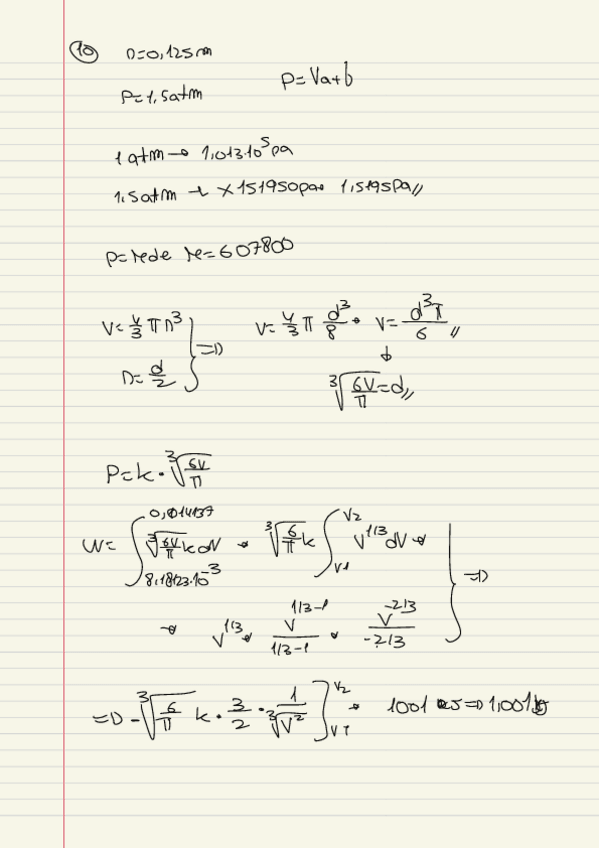 10 r=0,125m
P=1,5atm P=Va+b
1 atm → 1,013.10^5 pa
1.5atm → x 151950pa → 1,5195Pa//
P=k·d k=607800
V=4/3 π r^3 } ⇒ V=4/3 π d^3/8 → V=d^3π/6 //
r=d/2 ↓
∛(6V/π)=d//
P=k·∛(6V/π)
W=∫_{8,18123.10^-3}^{0,014137} ∛(6V/π) k dV → ∛(6/π) k ∫_{V1}^{V2} V^{1/3} dV →
→ V^{1/3} → V^{1/3-1}/(1/3-1) → V^{-2/3}/(-2/3) } ⇒
⇒ -∛(6/π) k · 3/2 · 1/∛(V^2) ]_{V1}^{V2} → 1001 ⇒ 1,001kJ